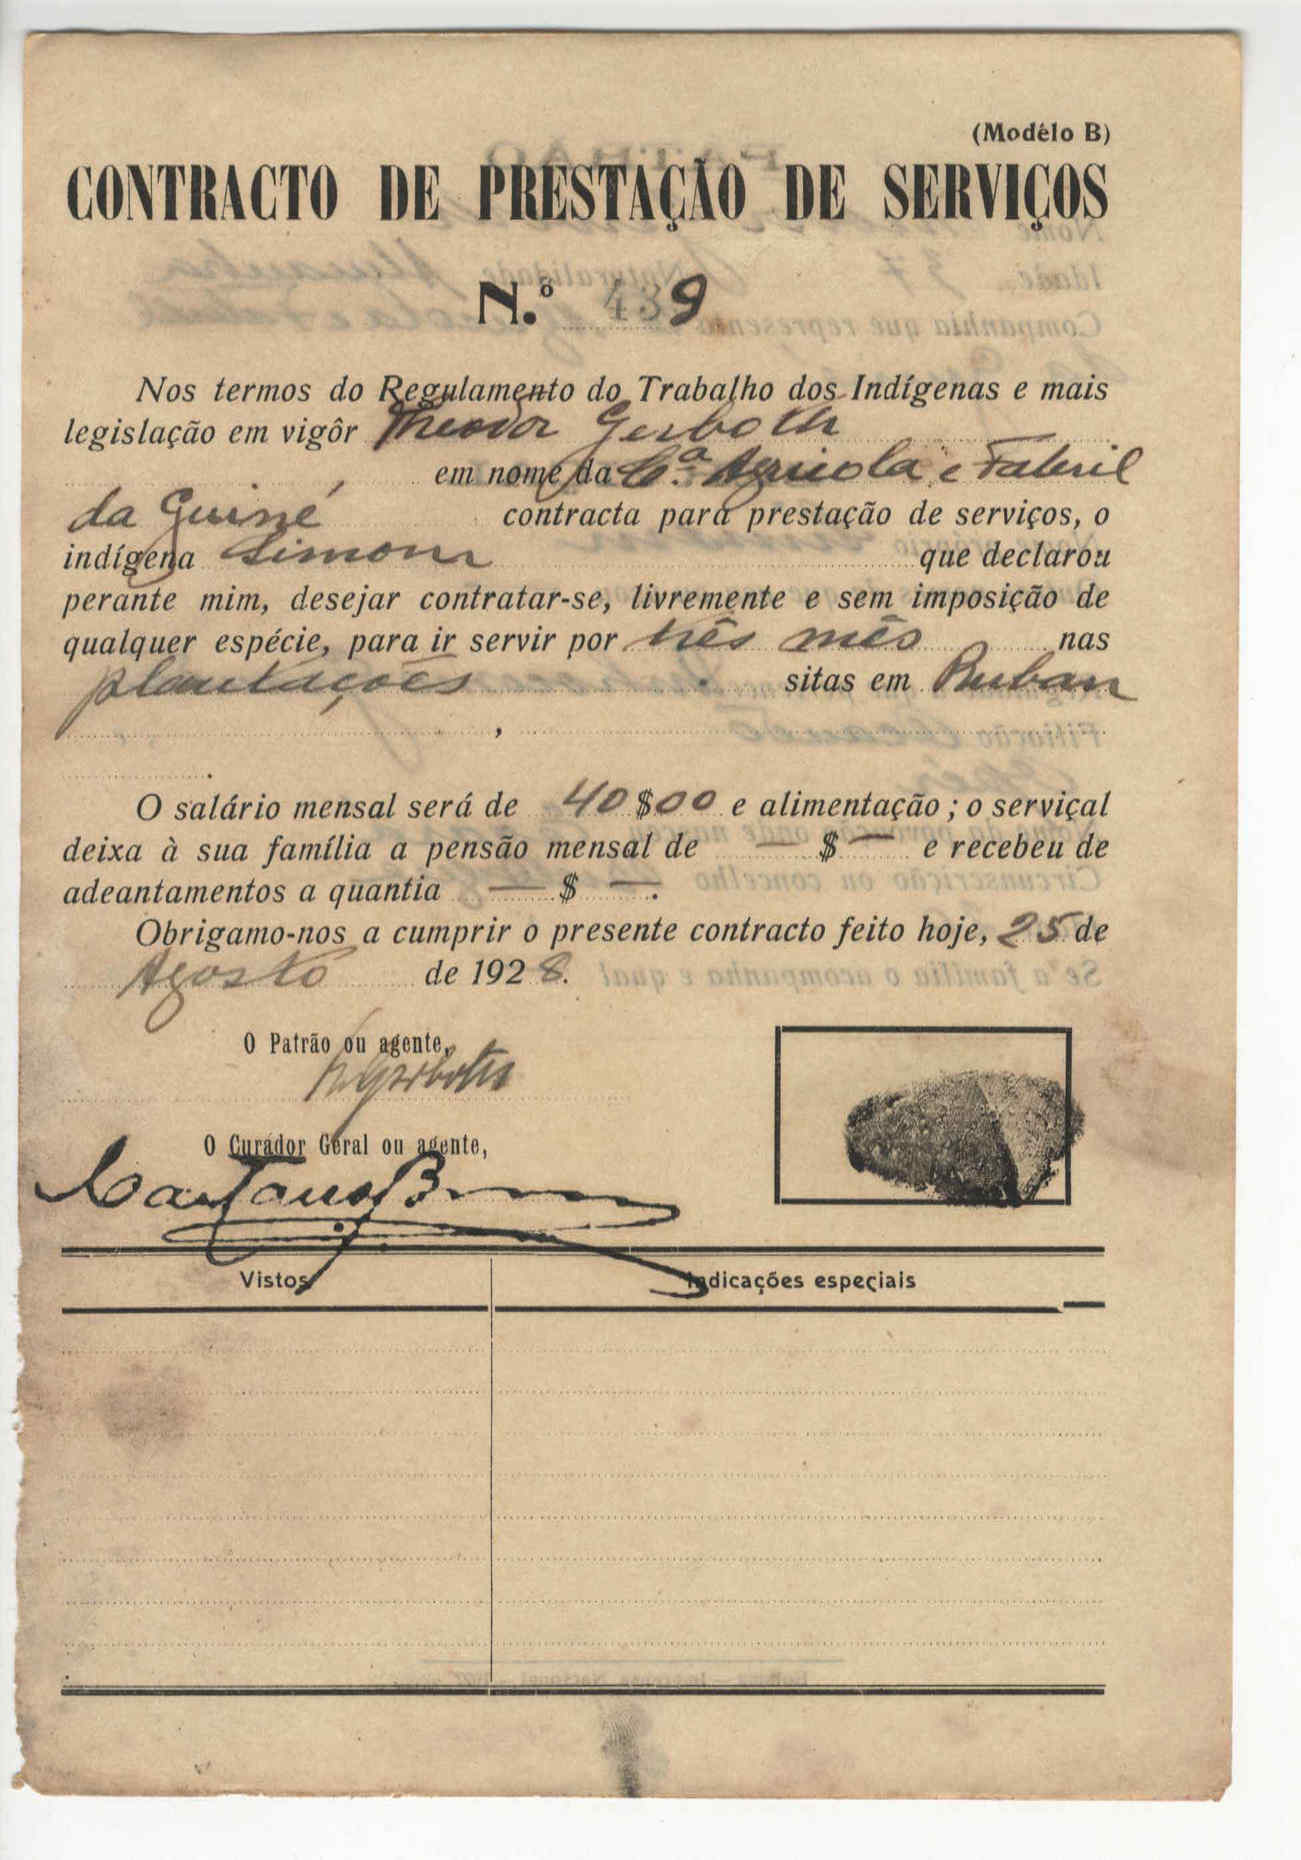 (Modêlo B)
CONTRACTO DE PRESTAÇÃO DE SERVIÇOS
N.º 439
Nos termos do Regulamento do Trabalho dos Indígenas e mais
legislação em vigôr Theodor Gerboth
em nome da C.ª Agricola e Fabril
da Guiné contracta para prestação de serviços, o
indígena Simon que declarou
perante mim, desejar contratar-se, livremente e sem imposição de
qualquer espécie, para ir servir por três mês nas
plantações sitas em Bubar
O salário mensal será de 40$00 e alimentação; o serviçal
deixa à sua família a pensão mensal de — $ — e recebeu de
adeantamentos a quantia — $ —.
Obrigamo-nos a cumprir o presente contracto feito hoje, 25 de
Agosto de 1928.
O Patrão ou agente,
Gerboth
O Curador Geral ou agente,
Caetano
Vistos Indicações especiais